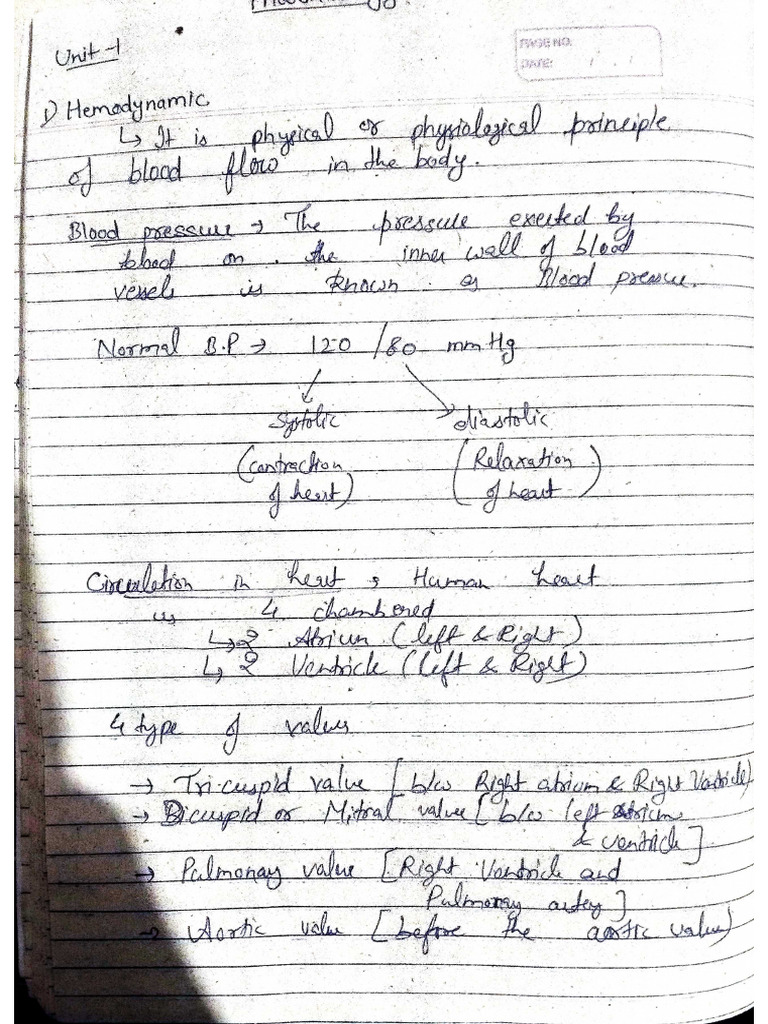 Unit-1
PAGE NO.
DATE: / /
1) Hemodynamic
↳ It is physical or physiological principle
of blood flow in the body.
Blood pressure → The pressure exerted by
blood on the inner wall of blood
vessels is known as Blood pressure.
Normal B.P → 120/80 mmHg
Systolic diastolic
(contraction (Relaxation
of heart) of heart)
Circulation in heart → Human heart
is 4 chambered
↳ 2 Atrium (left & Right)
↳ 2 Ventricle (left & Right)
4 type of valves
→ Tri-cuspid valve [b/w Right atrium & Right Ventricle)
→ Bicuspid or Mitral valve [b/w left atrium
& ventricle]
→ Pulmonay valve [Right Ventricle and
Pulmonay artery]
→ Aortic valve [before the aortic valve)